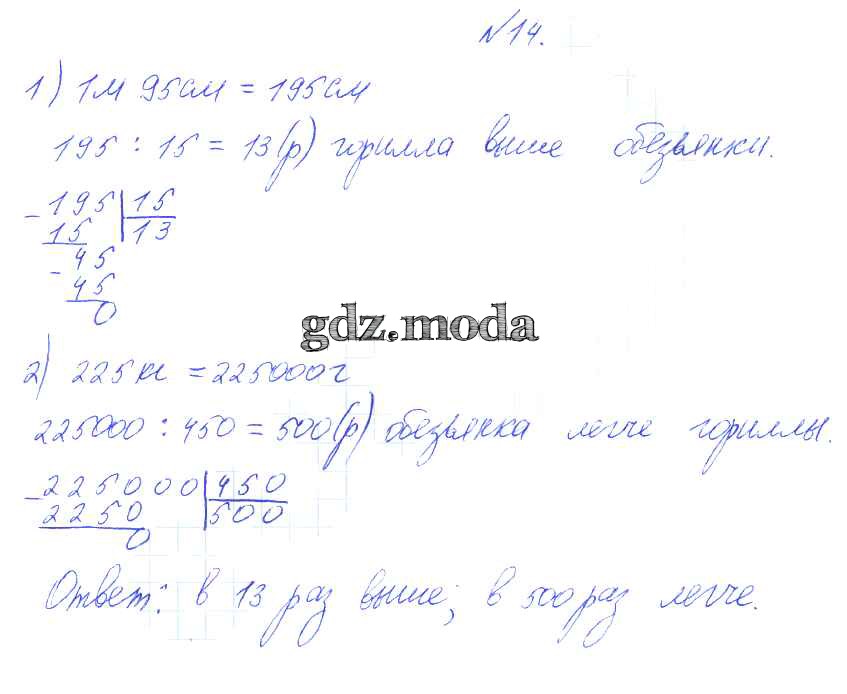 №14.
1) 1м 95см = 195см
195 : 15 = 13(р) горилла выше обезьянки.
- 195 | 15
15 | 13
- 45
45
0
gdz.moda
2) 225кг = 225000г
225000 : 450 = 500(р) обезьянка легче гориллы.
- 225000 | 450
2250 | 500
0
Ответ: в 13 раз выше; в 500 раз легче.